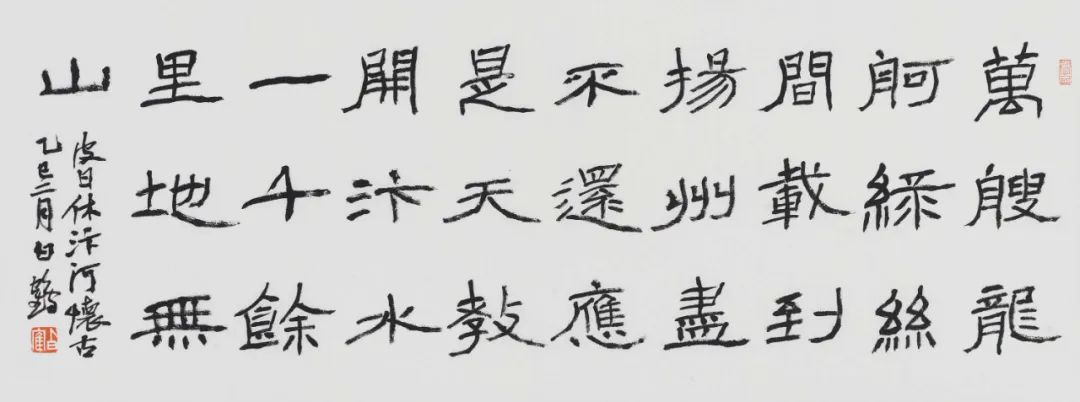 萬艘龍
舸綠絲
間載到
揚州盡
不還應
是天教
開汴水
一千餘
里地無
山
皮日休汴河懷古
乙巳二月白鶴